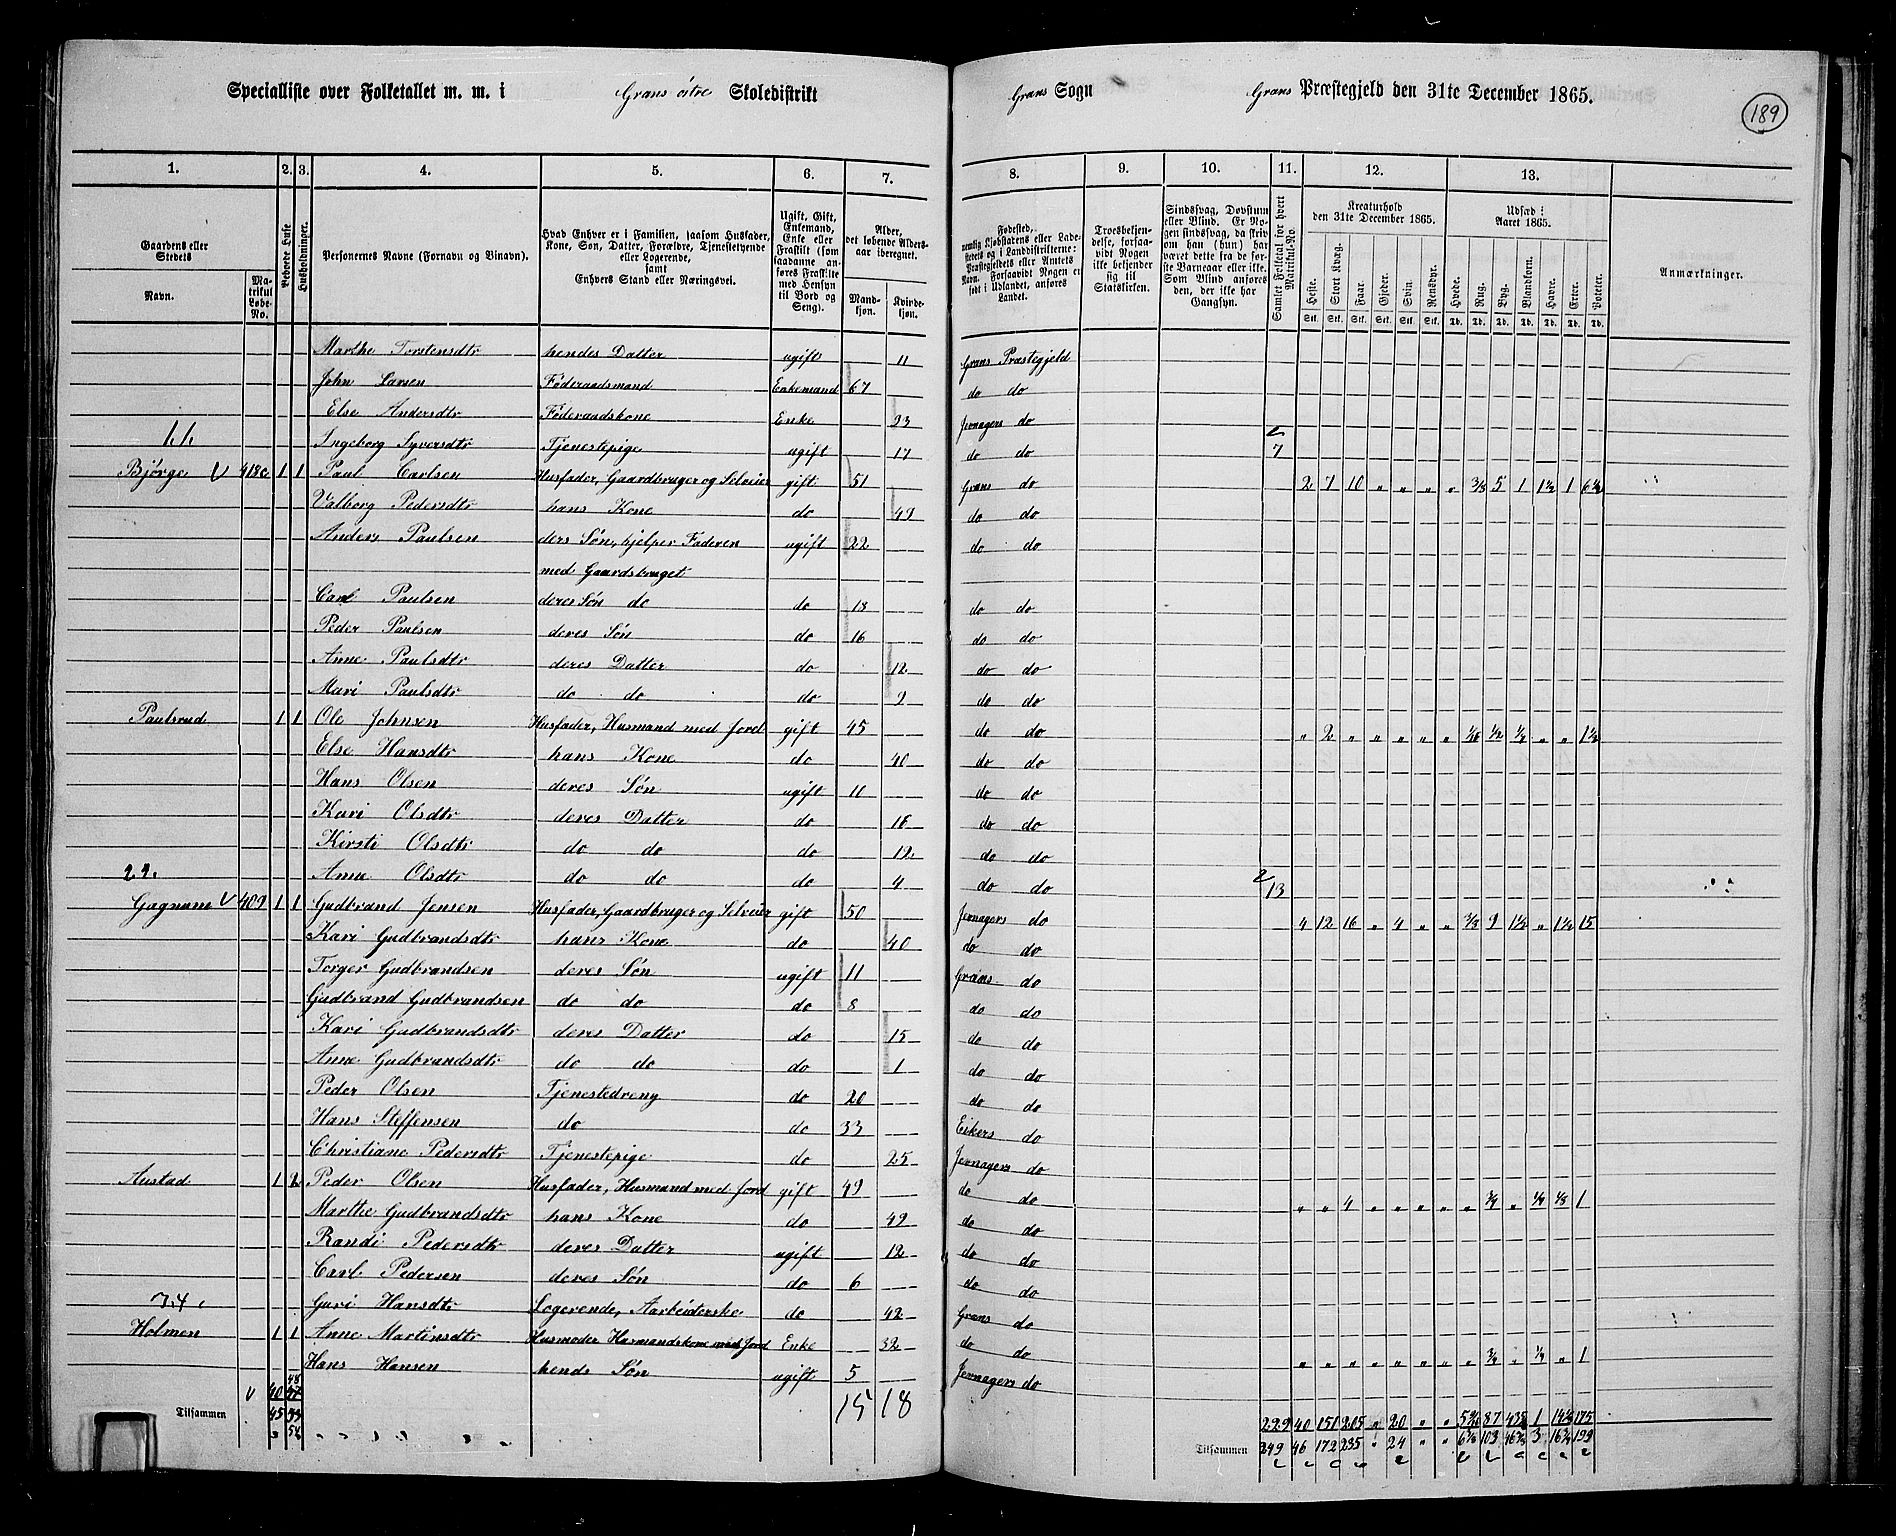 Specialliste over Folketallet m. m. i Grans östre Skoledistrikt
Grans Sogn Grans Præstegjeld den 31te December 1865.
189
1. 2. 3. 4. 5. 6. 7. 8. 9. 10. 11. 12. 13.
Gaardens eller Stedets
Navn.
Matrikul Løbe-No.
Beboede Huse
Husholdninger.
Personernes Navne (Fornavn og Binavn).
Hvad Enhver er i Familien, saasom Husfader, Kone, Søn, Datter, Forældre, Tjenestetyende eller Logerende, samt Enhvers Stand eller Næringsvei.
Ugift, Gift, Enkemand, Enke eller Fraskilt (som saadanne anføres Fraskilte med Hensyn til Bord og Seng).
Alder, det løbende Alders-aar iberegnet.
Mandkjøn.
Kvindekjøn.
Fødested, nemlig Kjøbstadens eller Ladestedets og i Landdistrikterne: Præstegjeldets eller Amtets Navn. Forsaavidt Nogen er født i Udlandet, anføres Landet.
Troesbekjendelse, forsaavidt Nogen ikke bekjender sig til Statskirken.
Sindssvag, Døvstum eller Blind. Er Nogen sindssvag, da skriv om han (hun) har været dette fra de første Barneaar eller ikke. Som Blind anføres den, der ikke har Gangsyn.
Samlet Folketal for hvert Matrikul-No.
Kreaturhold den 31te December 1865.
Heste. Stort Kvæg. Faar. Gjeder. Svin. Rensdyr.
Udsæd i Aaret 1865.
Hvede. Rug. Byg. Blandkorn. Havre. Erter. Poteter.
Stk. Stk. Stk. Stk. Stk. Stk. Td. Td. Td. Td. Td. Td. Td.
Anmærkninger.
Marthe Torstensdtr hendes Datter ugift 11 Grans Præstegjeld
John Larsen Föderaadsmand Enkemand 67 do do
Else Andersdtr Föderaadskone Enke Jevnagers do
Ingeborg Syversdtr Tjenestepige ugift 17 do do 7
Bjørge 418c 1 1 Paul Carlsen Husfader, Gaardbruger og Selveier gift 51 Grans do 2 7 10 „ „ „ „ 3/8 5 1 1½ 1 6½
Valborg Pedersdtr hans Kone do 49 do do
Anders Paulsen ders Søn, hjelper Faderen ugift 22 do do
med Gaardsbruget
Carl Paulsen deres Søn do do 18 do do
Peder Paulsen deres Søn do 16 do do
Anne Paulsdtr deres Datter do 12 do do
Mari Paulsdtr do do do 9 do do
Paulsrud 1 1 Ole Johnsen Husfader, Husmand med Jord gift 45 do do „ 2 „ „ „ „ „ 1/16 ½ „ „ 1½
Else Hansdtr hans Kone do 40 do do
Hans Olsen deres Søn ugift 11 do do
Kari Olsdtr deres Datter do do do
Kirsti Olsdtr do do do 12 do do
22. Anne Olsdtr do do do 4 do do 13
Gagnum 409 1 1 Gudbrand Jensen Husfader, Gaardbruger og Selveier gift 50 Jevnagers do 4 12 16 „ 4 „ „ 9 1½ „ 1½ 15
Kari Gudbrandsdtr hans Kone do 40 do do
Torger Gudbrandsen deres Søn ugift 11 Grans do
Gudbrand Gudbrandsen do do do 8 do do
Kari Gudbrandsdtr deres Datter do 15 do do
Anne Gudbrandsdtr do do do 1 do do
Peder Olsen Tjenestedreng do 20 do do
Hans Steffensen do do 33 Eikers do
Christiane Pedersdtr Tjenestepige do 25 Jevnagers do
Austad 1 2 Peder Olsen Husfader, Husmand med Jord gift 49 do do „ „ 4 „ „ „ „ „ ¾ „ 1
Marthe Gudbrandsdtr hans Kone do 49 do do
Randi Pedersdtr deres Datter ugift 12 do do
Carl Pedersen deres Søn do 6 do do
Guri Hansdtr Logerende, Arbeiderske do 42 Grans do
Holmen 1 1 Anne Martinsdtr Husmoder Husmandskone med Jord Enke 32 do do „ „ „ „ „ „ „ „ ¾ „ „ 1
Hans Hansen hends Søn ugift 5 Jevnagers do
15 18
Tilsammen 45
229 40 151 205 „ 20 „ „ 87 1 175
Tilsammen 249 46 172 235 „ 24 „ „ 103 3 199